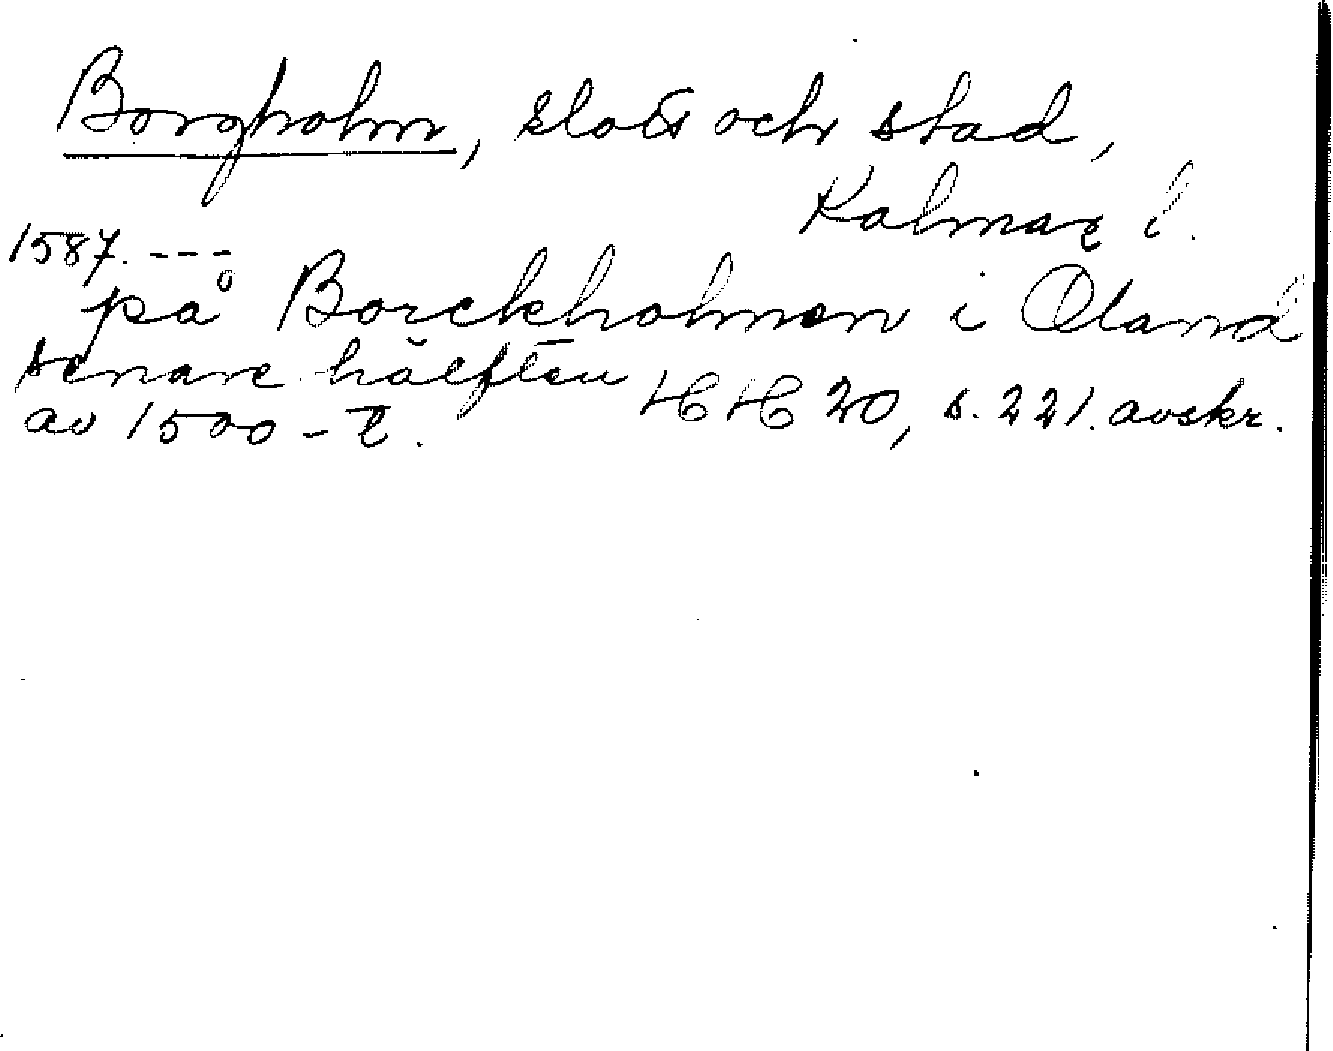 Borgholm, slott och stad,
Kalmar l.
1587. ---
på Borckholmen i Øland
senare hälften HH 20, s. 221. avskr.
av 1500-t.